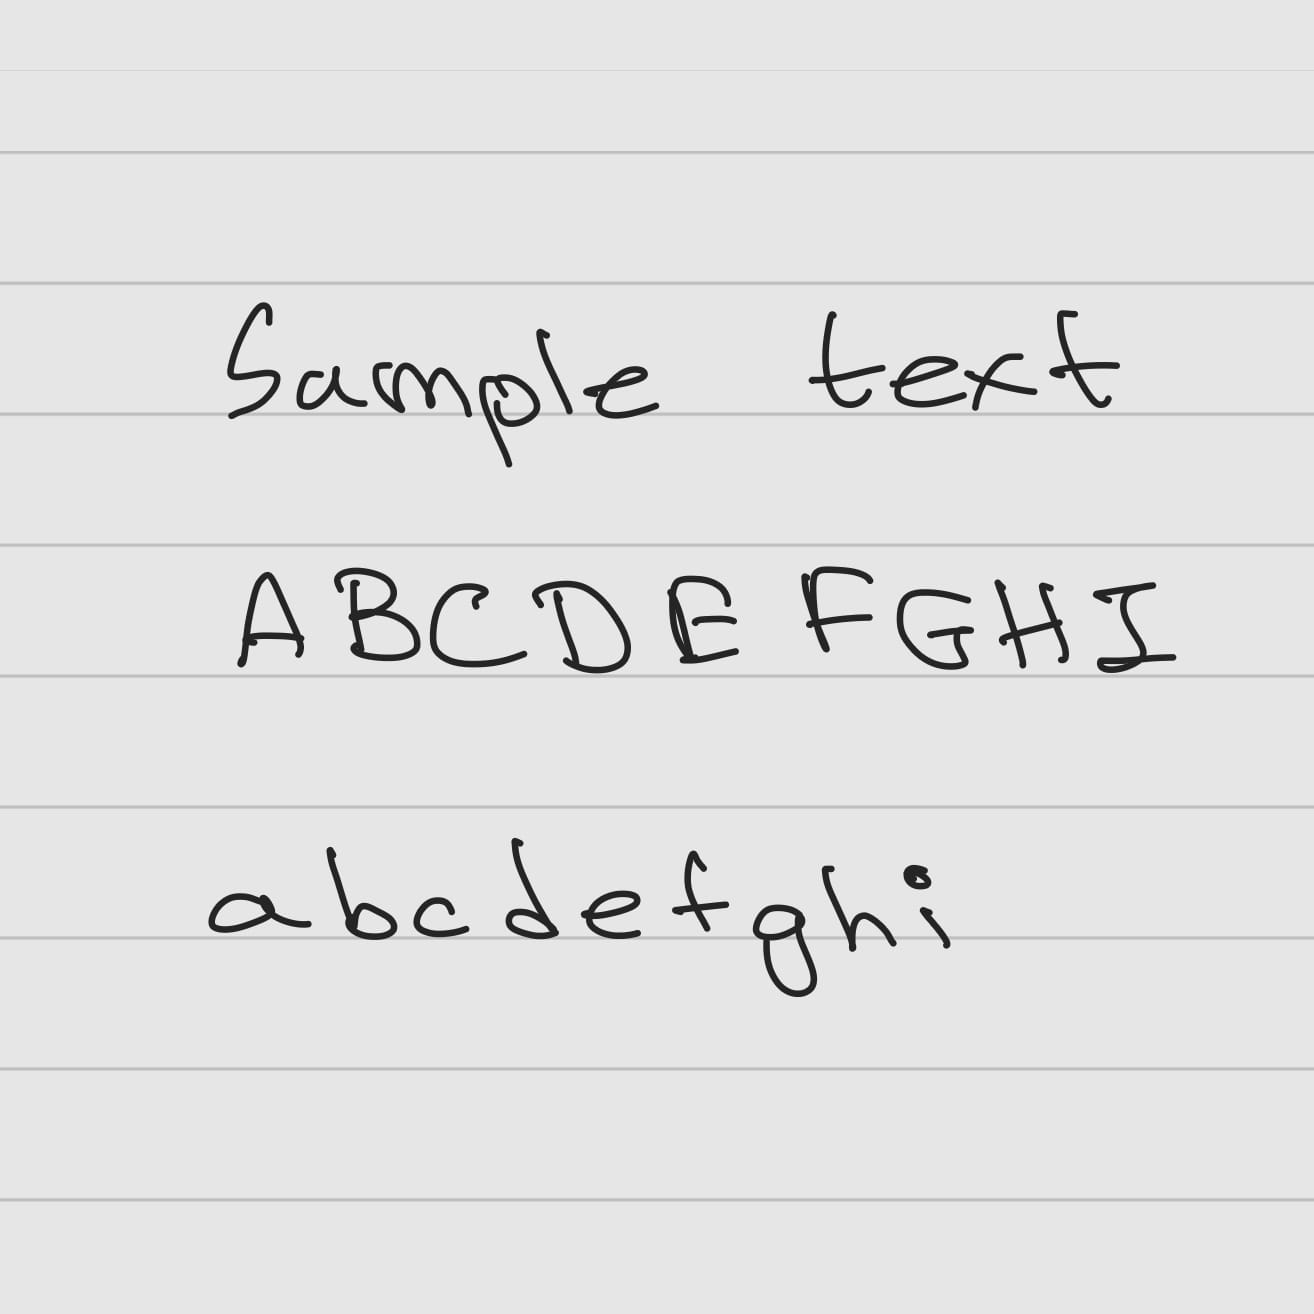 Sample text
ABCDEFGHI
abcdefghi